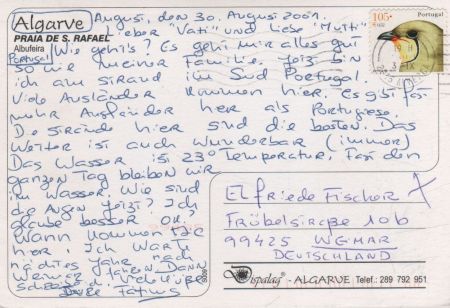 Algarve
PRAIA DE S. RAFAEL
Albufeira
Portugal
August, den 30. August 2001.
Lieber "Vati" und liebe "Mutti"
Wie geht's? Es geht mir alles gut
so wie meiner Familie. Jetzt bin
ich am Strand im Süd Portugal.
Viele Ausländer kommen hier. Es gibt fast
mehr Ausländer her als Portugiese.
Die Strände hier sind die besten. Das
Wetter ist auch wunderbar (immer)
Das Wasser ist 23° Temperatur. Fast den
ganzen Tag bleiben wir
im Wasser. Wie sind
die Augen jetzt? Ich
glaube besser oder?
Wann kommen Sie
her? Ich warte
nächstes Jahr nach
fahren. Dann
105$
Portugal
Elfriede Fischer
Fröbelstraße 10b
99425 WEIMAR
DEUTSCHLAND
Vispalag - ALGARVE Telef.: 289 792 951